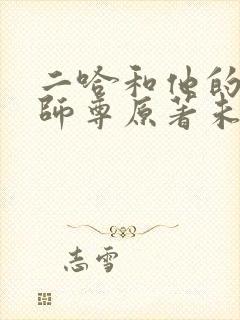 二哈和他的
師尊原著未
志雪